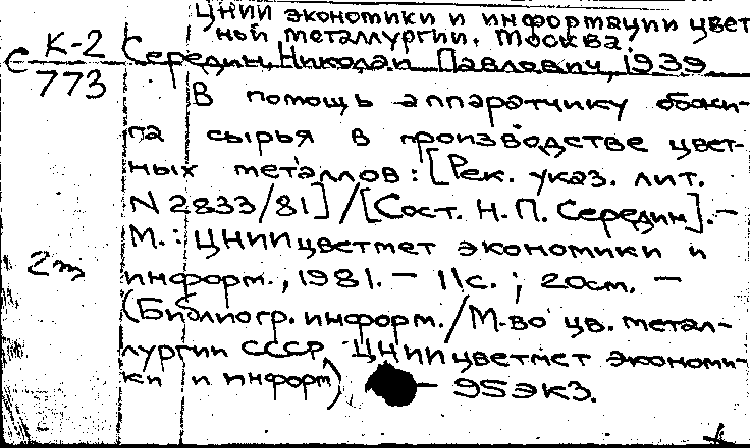 ЦНИИ экономики и информации цвет
ной металлургии. Москва.
К-2
С
773
Середин, Николай Павлович, 1939
В помощь аппаратчику обжи-
га сырья в производстве цвет-
ных металлов: [Рек. указ. лит.
N 2833/81] / [Сост. Н. П. Середин]. –
М.: ЦНИИцветмет экономики и
2т
информ., 1981. – 11с. ; 20см. –
(Библиогр. информ. / М-во цв. метал-
лургии СССР, ЦНИИцветмет экономи-
ки и информ) – 95 экз.